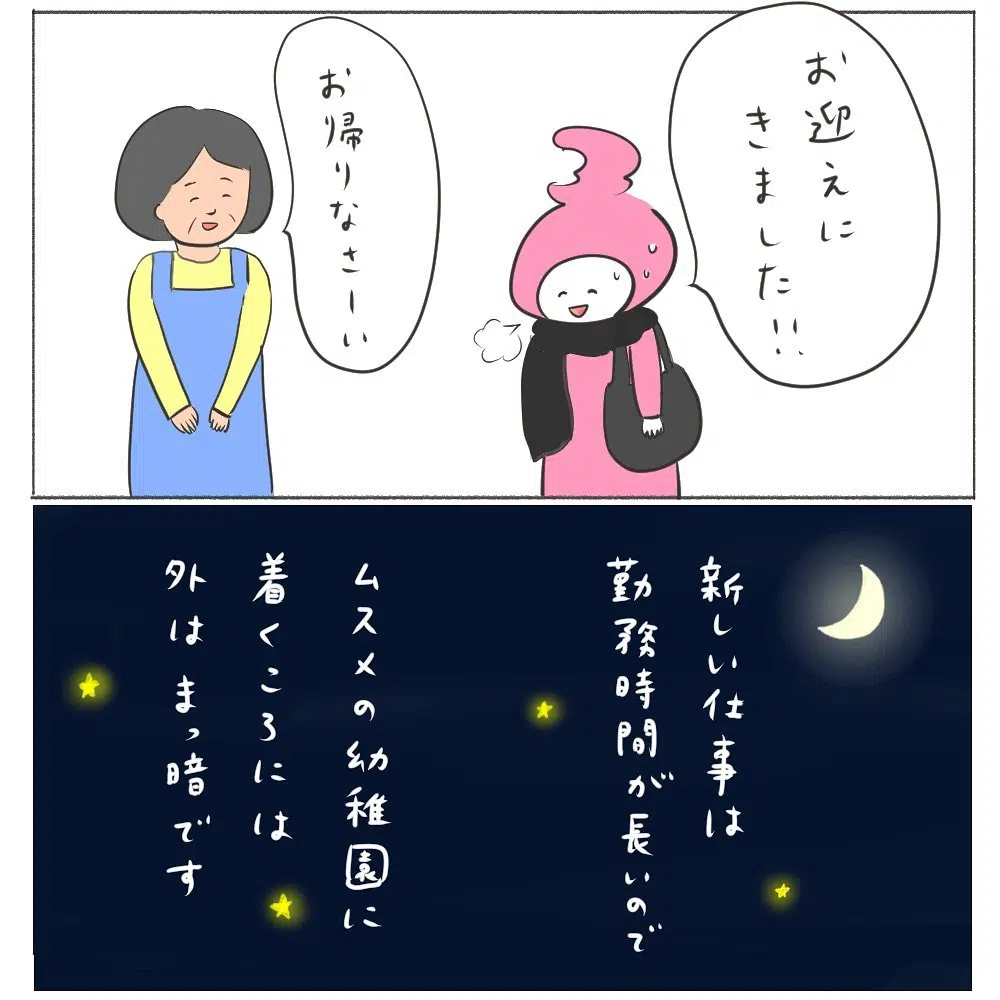 お迎えに
きました!!
お帰りなさーい
新しい仕事は
勤務時間が長いので
ムスメの幼稚園に
着くころには
外はまっ暗です